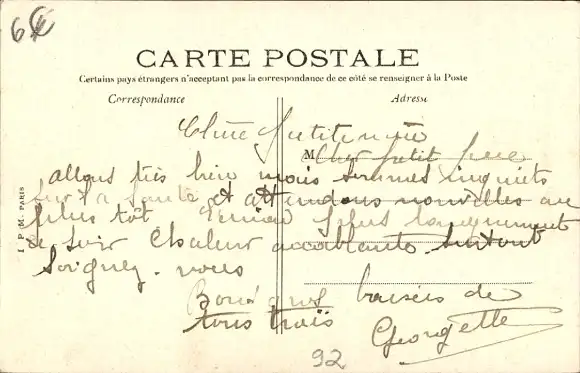 6€
CARTE POSTALE
Certains pays étrangers n'acceptant pas la correspondance de ce côté se renseigner à la Poste
Correspondance
Adresse
M Cher petit père
allons très bien mais sommes inquiets
sur ta santé et attendons nouvelles au
plus tôt longuement
ce soir Chaleur accablante surtout
Soignez-vous
Bons gros baisers de
tous trois
Georgette
I P M. PARIS
92